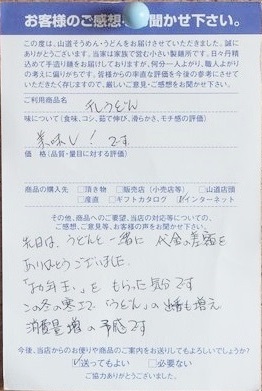 お客様のご感想、お聞かせ下さい。
この度は、山道そうめん・うどんをお届けさせていただきました。誠に
ありがとうございます。当家は家族で営む小さい製麺所です。日々丹精
込めて手造り麺をお届けしておりますが、何分一人よがり、職人よがり
の考えに偏りがちです。皆様からの率直な評価を今後の参考にさせて
いただきたく存じますので、厳しいご意見・ご感想をお聞かせ下さい。
ご利用商品名
乱うどん
味について(食味、コシ、茹で伸び、滑らかさ、モチ感の評価)
美味し!です
価 格(品質・量目に対する評価)
商品の購入先 □頂き物 □販売店(小売店等) □山道店頭
□産直 □ギフトカタログ □インターネット
その他、商品へのご要望、当店の対応等についての、
ご感想、ご意見等、お客様の声をお聞かせ下さい。
先日は、うどんと一緒に代金の差額を
ありがとうございました。
「お年玉」をもらった気分です
この冬の寒さで「うどん」の出番も増え
消費量増の予感です
今後、当店からのお便りや商品のご案内をお送りしてもよろしいでしょうか?
□送ってもよい □必要ない
ご協力ありがとうございました。